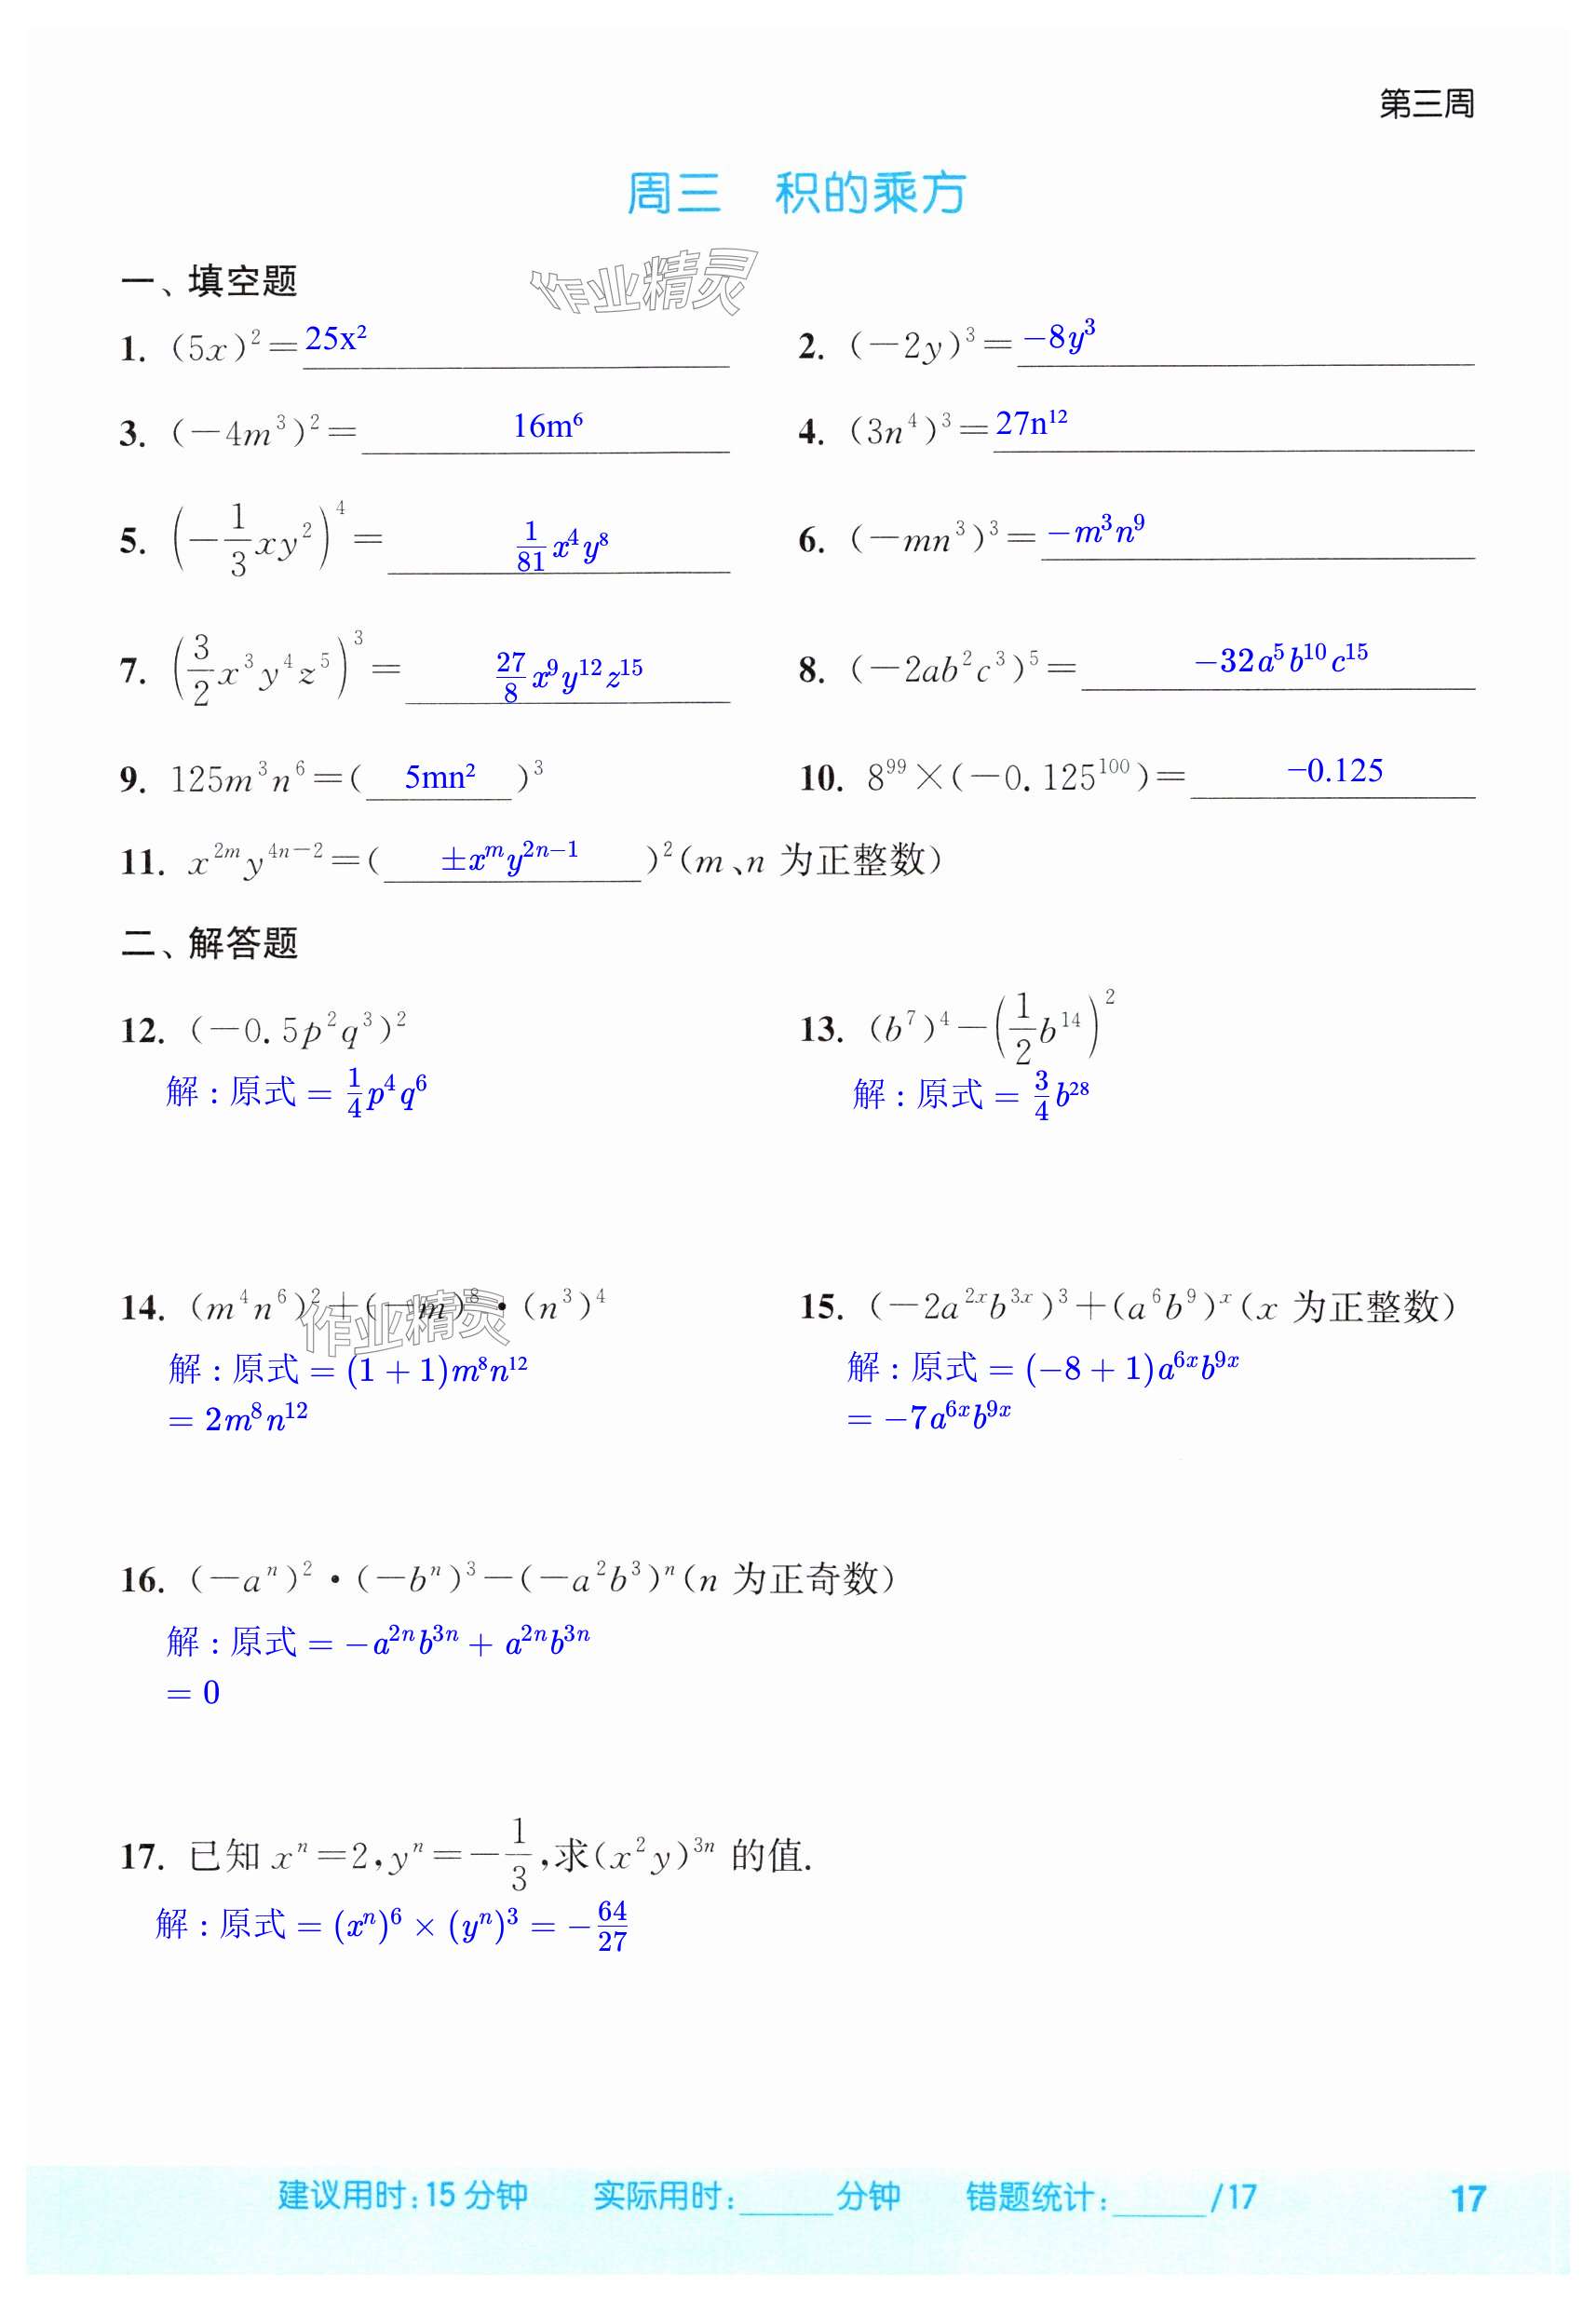 第三周
周三 积的乘方
作业精灵
一、填空题
1. (5x)²=25x²
2. (-2y)³=-8y³
3. (-4m³)²=16m⁶
4. (3n⁴)³=27n¹²
5. (-1/3xy²)⁴=1/81x⁴y⁸
6. (-mn³)³=-m³n⁹
7. (3/2x³y⁴z⁵)³=27/8x⁹y¹²z¹⁵
8. (-2ab²c³)⁵=-32a⁵b¹⁰c¹⁵
9. 125m³n⁶=(5mn²)³
10. 8⁹⁹×(-0.125¹⁰⁰)=-0.125
11. x²ᵐy⁴ⁿ⁻²=(±xᵐy²ⁿ⁻¹)²(m、n为正整数)
二、解答题
12. (-0.5p²q³)²
解:原式=1/4p⁴q⁶
13. (b⁷)⁴-(1/2b¹⁴)²
解:原式=3/4b²⁸
14. (m⁴n⁶)²+(-m)⁸·(n³)⁴
作业精灵
解:原式=(1+1)m⁸n¹²
=2m⁸n¹²
15. (-2a²ˣb³ˣ)³+(a⁶b⁹)ˣ(x为正整数)
解:原式=(-8+1)a⁶ˣb⁹ˣ
=-7a⁶ˣb⁹ˣ
16. (-aⁿ)²·(-bⁿ)³-(-a²b³)ⁿ(n为正奇数)
解:原式=-a²ⁿb³ⁿ+a²ⁿb³ⁿ
=0
17. 已知xⁿ=2,yⁿ=-1/3,求(x²y)³ⁿ的值.
解:原式=(xⁿ)⁶×(yⁿ)³=-64/27
建议用时:15分钟 实际用时:_____分钟 错题统计:_____/17 17